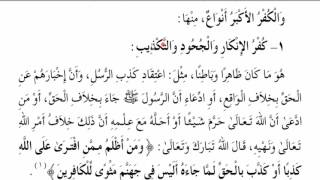 وَالْكُفْرُ الأَكْبَرُ أَنْوَاعٌ، مِنْهَا:
١- كُفْرُ الإِنْكَارِ وَالْجُحُودِ وَالتَّكْذِيبِ:
هُوَ مَا كَانَ ظَاهِرًا وَبَاطِنًا، مِثْلُ: اعْتِقَادِ كَذِبِ الرُّسُلِ، وَأَنَّ إِخْبَارَهُمْ عَنِ
الْحَقِّ بِخِلَافِ الْوَاقِعِ، أَوِ ادِّعَاءِ أَنَّ الرَّسُولَ ﷺ جَاءَ بِخِلَافِ الْحَقِّ، أَوْ مَنِ
ادَّعَىٰ أَنَّ اللَّهَ تَعَالَىٰ حَرَّمَ شَيْئًا أَوْ أَحَلَّهُ مَعَ عِلْمِهِ أَنَّ ذَلِكَ خِلَافُ أَمْرِ اللَّهِ
تَعَالَىٰ وَنَهْيِهِ، قَالَ اللَّهُ تَبَارَكَ وَتَعَالَىٰ: ﴿وَمَنْ أَظْلَمُ مِمَّنِ افْتَرَىٰ عَلَى اللَّهِ
كَذِبًا أَوْ كَذَّبَ بِالْحَقِّ لَمَّا جَاءَهُ أَلَيْسَ فِي جَهَنَّمَ مَثْوًى لِّلْكَافِرِينَ﴾(١).